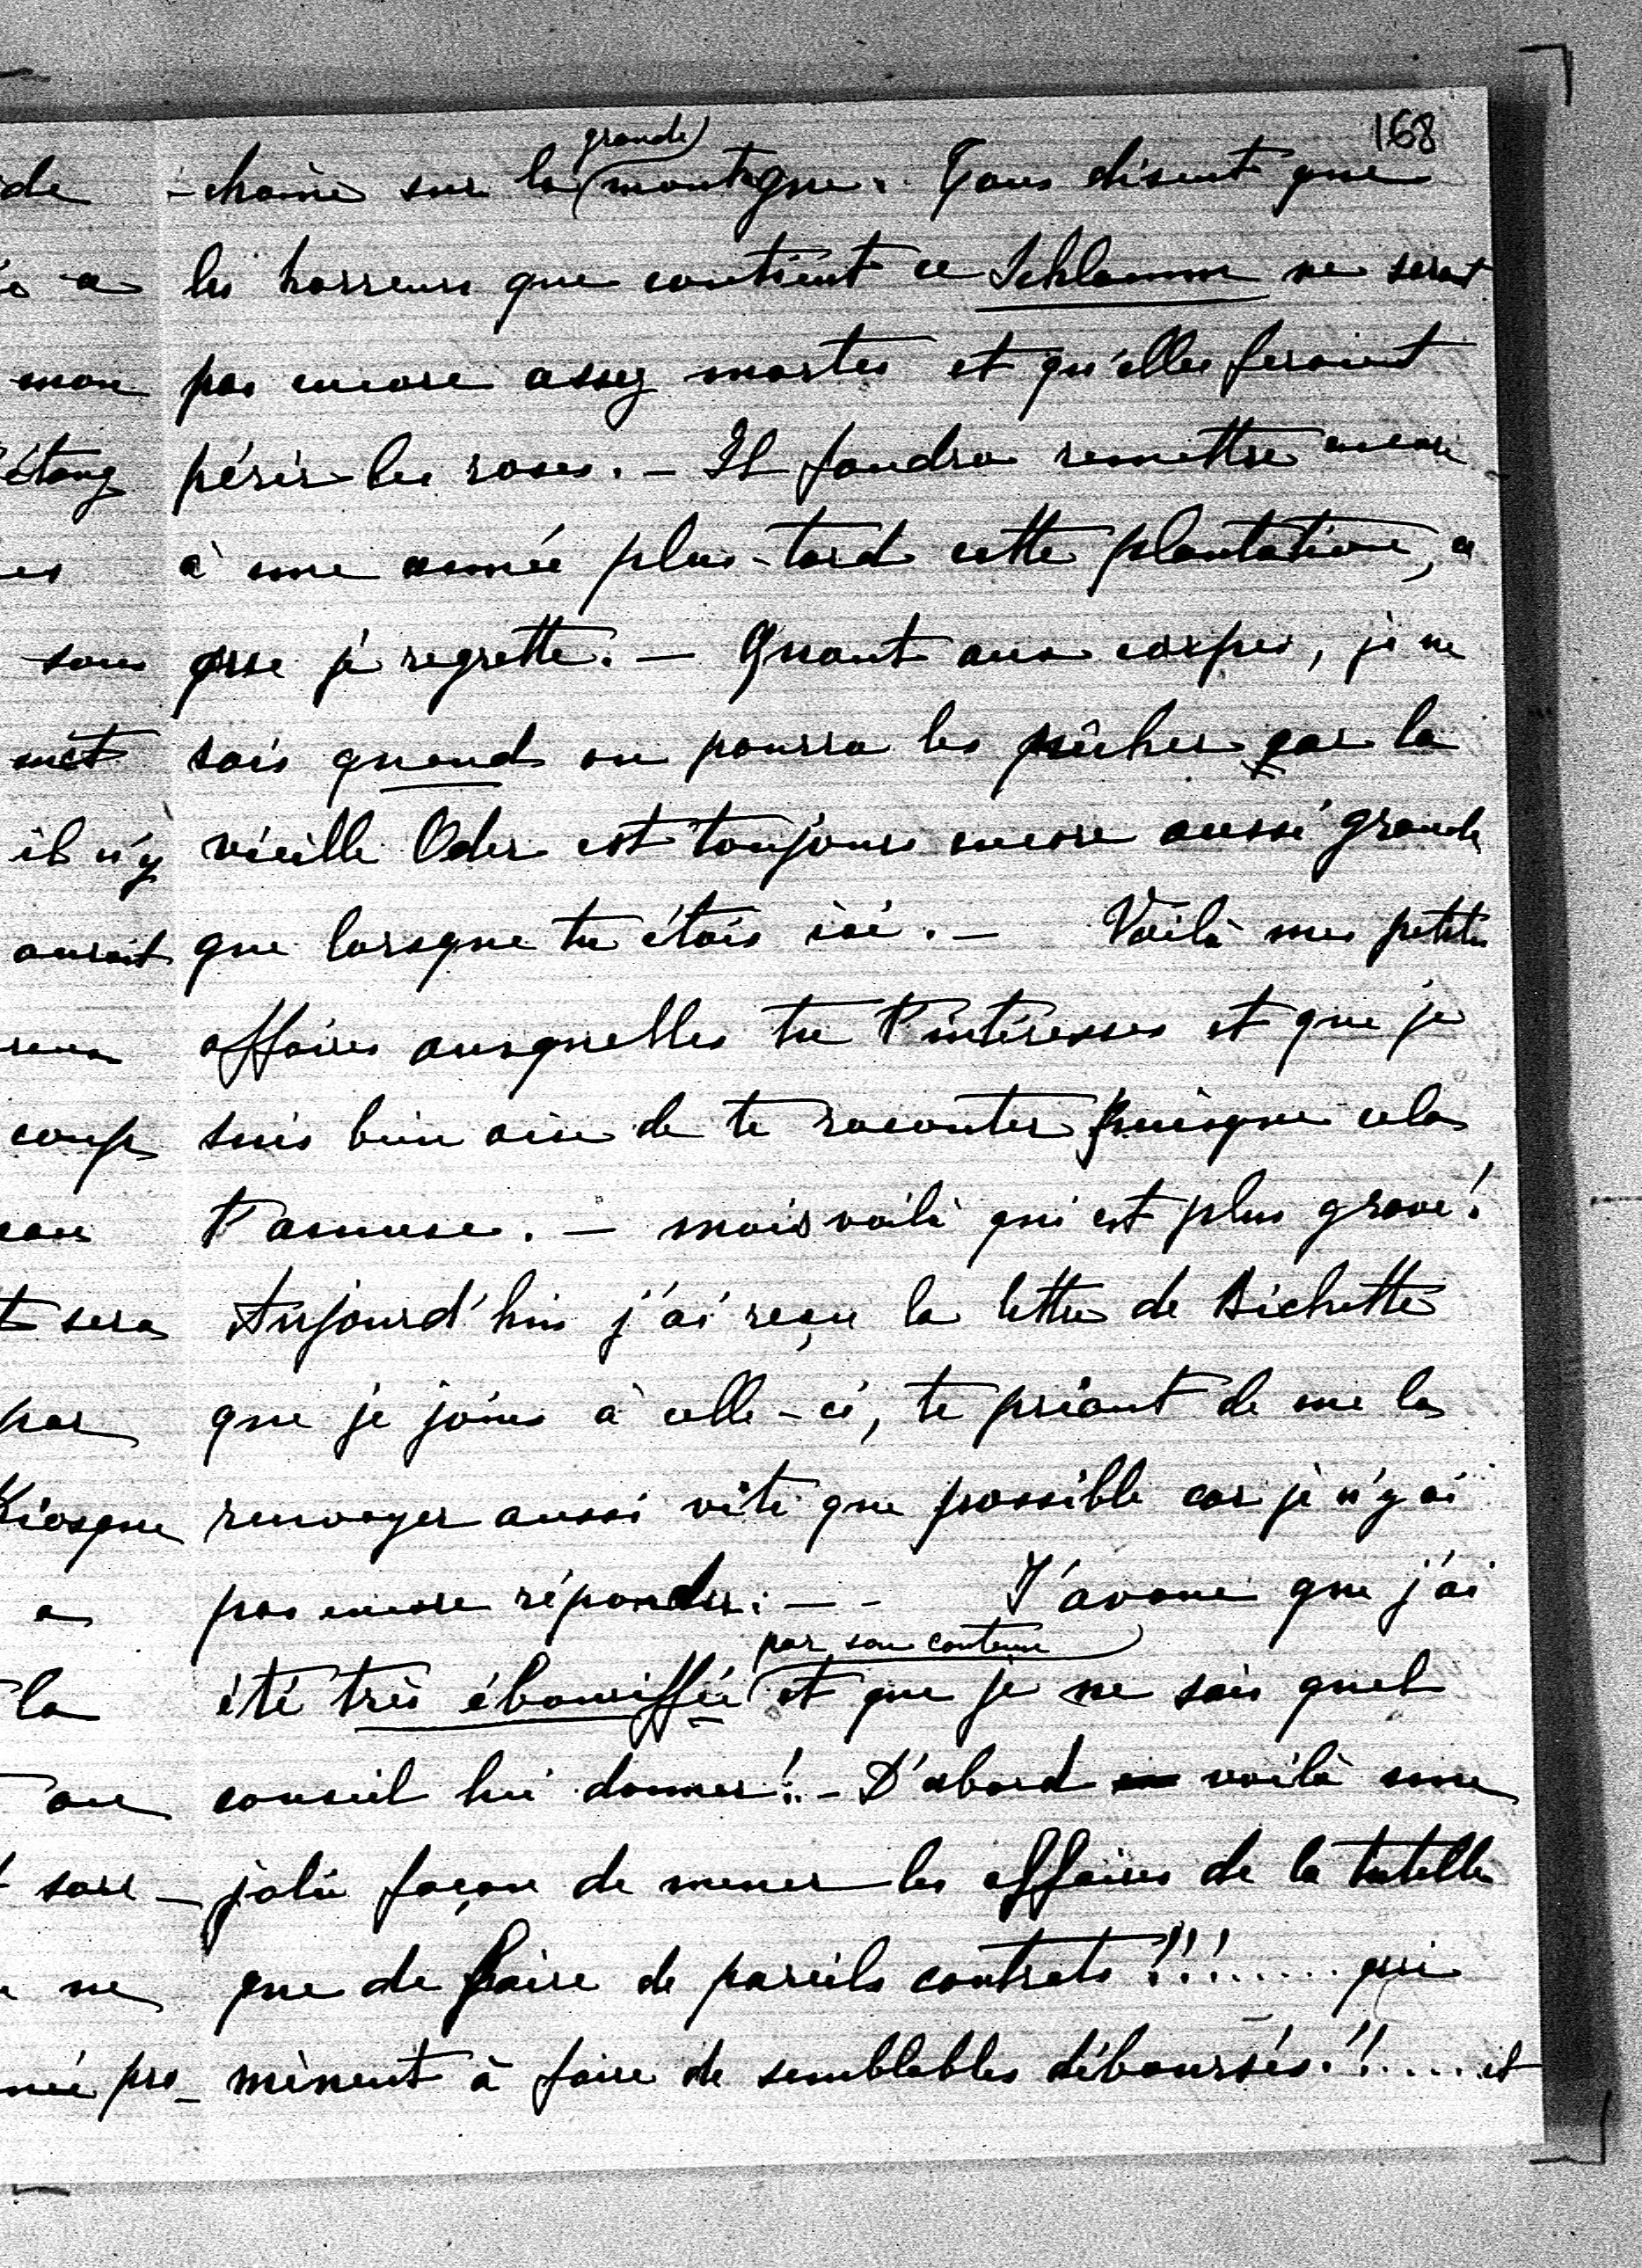 168
grande
-chaine sur la montagne. Tous disent que
les horreurs que contient ce Schlamm ne serait
pas encore assez mortes et qu'elles feraient
périr les roses. — Il faudra remettre encore
à une année plus-tard cette plantation, ce
que je regrette. — Quant aux carpes, je ne
sais quand on pourra les pêcher car la
vieille Oder est toujours encore aussi grande
que lorsque tu étais ici. — Voilà mes petites
affaires auxquelles tu t'intéresses et que je
suis bien aise de te raconter puisque cela
t'amuse. — mais voilà qui est plus grave!
Aujourd'hui j'ai reçu la lettre de Bichette
que je joins à celle-ci, te priant de me la
renvoyer aussi vite que possible car je n'y ai
pas encore répondu. — - J'avoue que j'ai
par son contenu
été très ébouriffée et que je ne sais quel
conseil lui donner!.. — D'abord voilà une
jolie façon de mener les affaires de la tutelle
que de faire de pareils contrats!!!....... qui
mènent à faire de semblables déboursés!!.... et
de
a
mon
étang
sous
met
il n'y
aurait
coup
sera
par
Kiosque
a
la
au
sou-
ne
née pro-